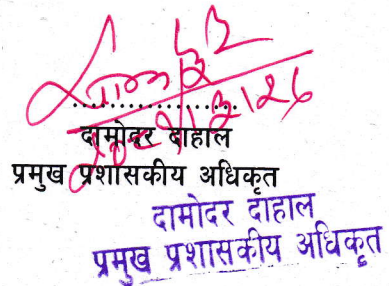 ..................
दामोदर दाहाल
प्रमुख प्रशासकीय अधिकृत
दामोदर दाहाल
प्रमुख प्रशासकीय अधिकृत